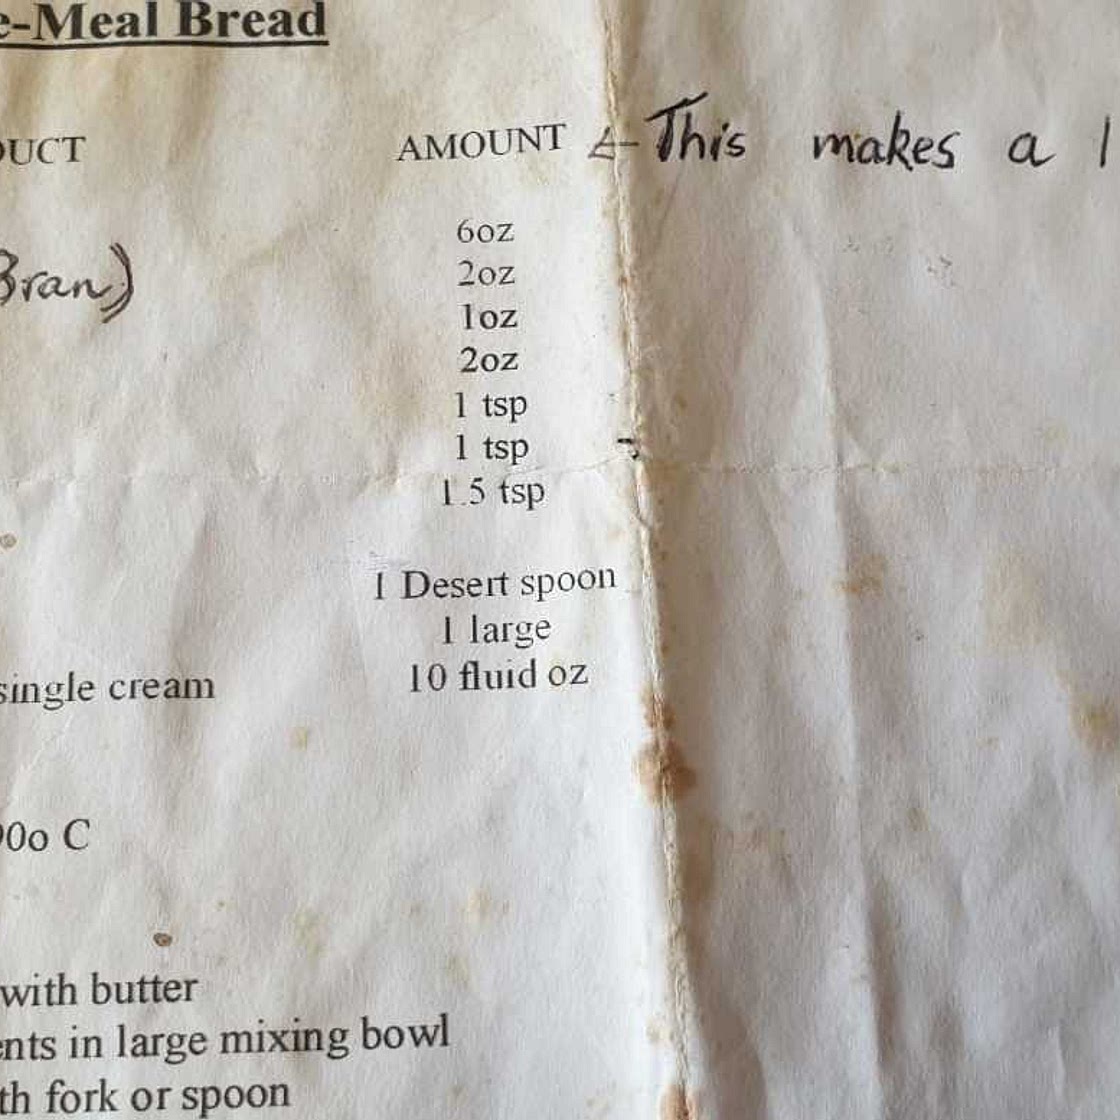 e-Meal Bread
UCT AMOUNT ← This makes a
6oz
Bran) 2oz
1oz
2oz
1 tsp
1 tsp
1.5 tsp
1 Desert spoon
1 large
single cream 10 fluid oz
00o C
with butter
ents in large mixing bowl
th fork or spoon